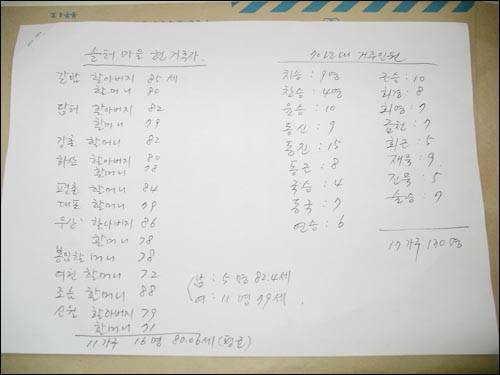 솔허 마을 현 거주자.
갈밤 할아버지 85세
할머니 80
담허 할아버지 82
할머니 79
강촌 할머니 82
화산 할아버지 80
할머니 78
평촌 할머니 84
대포 할머니 79
우산 할아버지 86
할머니 78
봉임할머니 78
여천 할머니 72
조음 할머니 88
신원 할아버지 79
할머니 71
11가구 16명 80.06세(평균)
남: 5명 82.4세
여: 11명 79세.
70년대 거주인원
치승: 9명
찬승: 4명
윤승: 10
동신: 9
동진: 15
동근: 8
국승: 4
동국: 7
연승: 6
근승: 10
회경: 8
회영: 7
금천: 7
회근: 5
재묵: 9
진묵: 5
솔승: 7
17가구 130명